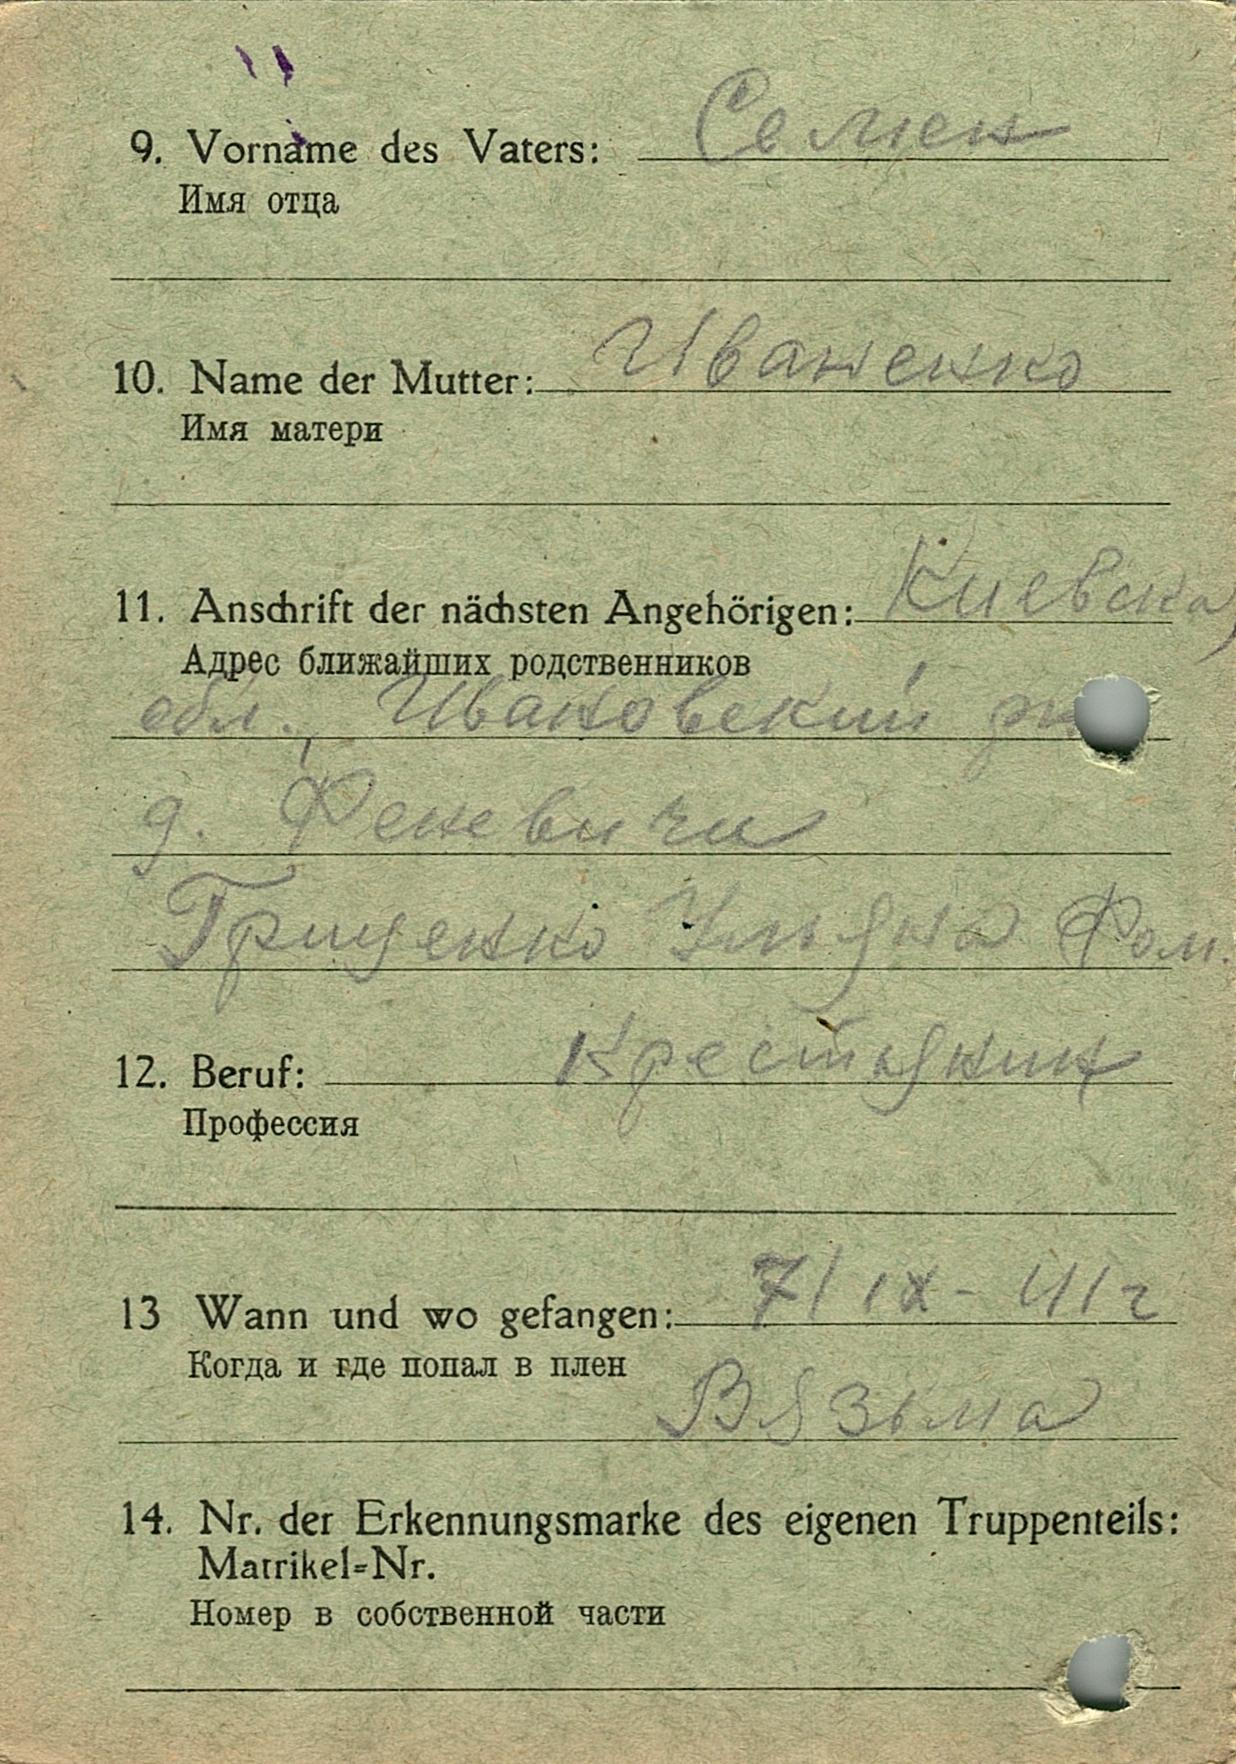 9. Vorname des Vaters: Семен
Имя отца
10. Name der Mutter: Иваненко
Имя матери
11. Anschrift der nächsten Angehörigen: Киевская
Адрес ближайших родственников
обл., Ивановский
д. Феневичи
Грищенко Ульяна Фом.
12. Beruf: Крестьянин
Профессия
13 Wann und wo gefangen: 7/IX - 41г
Когда и где попал в плен
Вязьма
14. Nr. der Erkennungsmarke des eigenen Truppenteils:
Matrikel=Nr.
Номер в собственной части